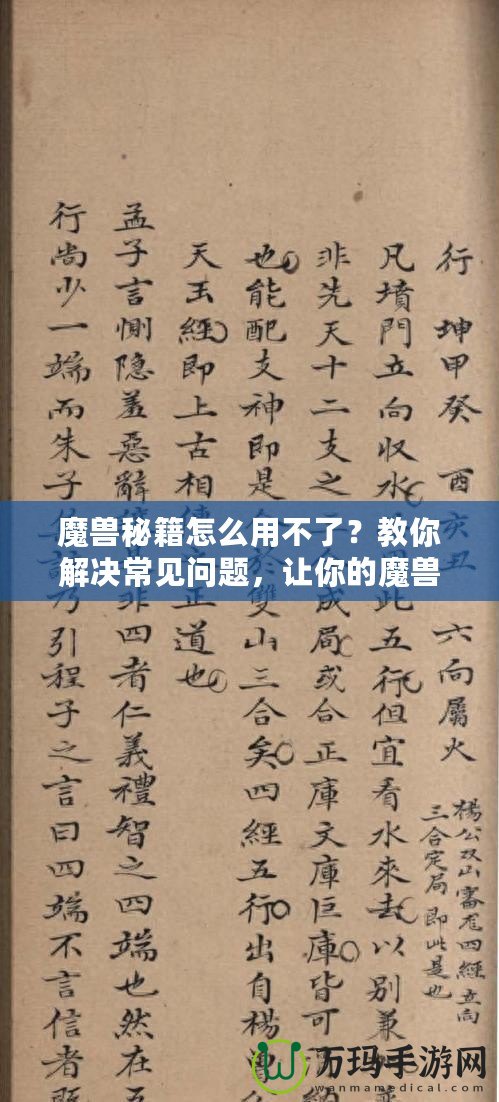 行 坤甲癸 酉亥丑 六向屬火
楊公双山審 四經立向
三合定局即此是也
凡墳門立向收水 此五行但宜看水來去以別兼
非先天十二支之 成局或合正庫文庫巨庫皆可
也能配支神即是 於雙山三合矣四經五行出自楊曾
天玉經即上古相 正道也
孟子言惻隐羞惡辭 非四者仁義禮智之四端也然在五
行尚少一端而朱子 乃引程子之言曰四端不言信者既
魔兽秘籍怎么用不了？教你
解决常见问题，让你的魔兽
万玛手游网
wanmamedical.com